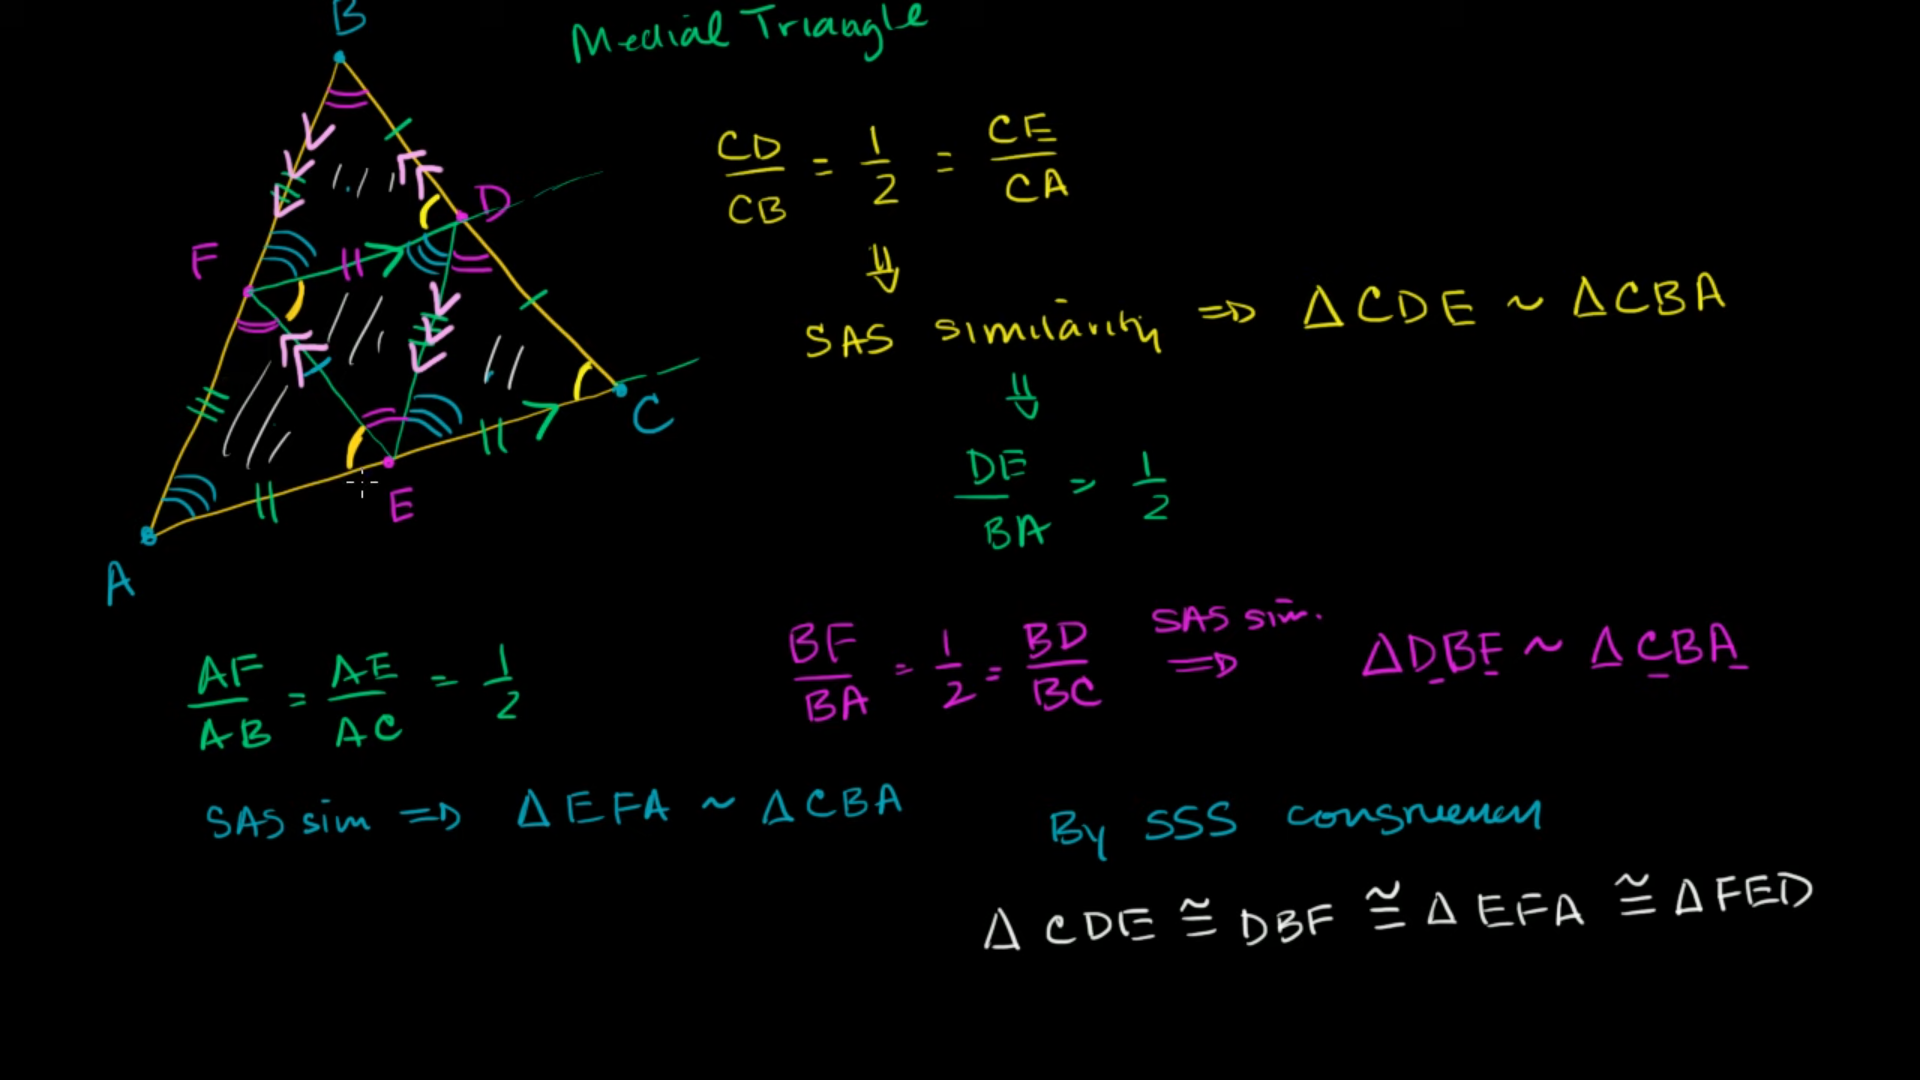 Medial Triangle
B
D
F
C
E
A
CD/CB = 1/2 = CE/CA
⇓
SAS similarity ⇒ ΔCDE ~ ΔCBA
⇓
DE/BA = 1/2
AF/AB = AE/AC = 1/2
BF/BA = 1/2 = BD/BC SAS sim. ⇒ ΔDBF ~ ΔCBA
SAS sim ⇒ ΔEFA ~ ΔCBA
By SSS congruency
ΔCDE ≅ DBF ≅ ΔEFA ≅ ΔFED